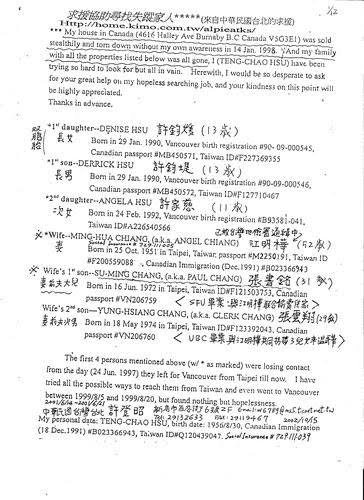 1/12
求援協助尋找失蹤家人*****(來自中華民國台北的求援)
Http://home.kimo.com.tw/alpieatks/
*** My house in Canada (4616 Halley Ave Burnaby B.C Canada V5G3E1) was sold
stealthily and torn down without my own awareness in 14 Jan. 1998. And my family
with all the properties listed below was all gone, I (TENG-CHAO HSU) have been
trying so hard to look for but all in vain. Herewith, I would be so desperate to ask
for your great help on my hopeless searching job, and your kindness on this point will
be highly appreciated.
Thanks in advance.
*1st daughter--DENISE HSU 許鈞 (13歲)
長女 Born in 29 Jan. 1990, Vancouver birth registration #90-09-000545,
Canadian passport #MB450571, Taiwan ID#F227369355
*1st son--DERRICK HSU 許鈞堤 (13歲)
長男 Born in 29 Jan. 1990, Vancouver birth registration #90-09-000546,
Canadian passport #MB450572, Taiwan ID#F127710467
*2nd daughter--ANGELA HSU 許家慈 (11歲)
次女 Born in 24 Feb. 1992, Vancouver birth registration #B93581-041,
Taiwan ID#A226540566
*Wife--MING-HUA CHIANG, (a.k.a. ANGEL CHIANG) 江明樺 (52歲)
妻 Born in 25 Oct. 1951 in Taipei, Taiwan, passport #M2250191, Taiwan ID
#F200559088 , Canadian Immigration (Dec.1991) #B023366943
Wife's 1st son--SU-MING CHANG, (a.k.a. PAUL CHANG) 張書銘 (31歲)
妻前夫大兒 Born in 16 Jun. 1972 in Taipei, Taiwan ID#F121503753, Canadian
passport #VN206759
Wife's 2nd son--YUNG-HSIANG CHANG, (a.k.a. CLERK CHANG) 張雲翔 (29歲)
妻前夫次男 Born in 18 May 1974 in Taipei, Taiwan ID#F123392043, Canadian
passport #VN206760
The first 4 persons mentioned above (w/ * as marked) were losing contact
from the day (24 Jun. 1997) they left for Vancouver from Taipei till now. I have
tried all the possible ways to reach them from Taiwan and even went to Vancouver
between 1999/8/6 and 1999/8/20, but found nothing but hopelessness.
Tel: 29132633 Fax: 29119467 2002/19/15
My personal data: TENG-CHAO HSU, birth date: 1956/8/30, Canadian Immigration
(18 Dec.1991) #B023366943, Taiwan ID#Q120439047. Social Insurance # 729111039